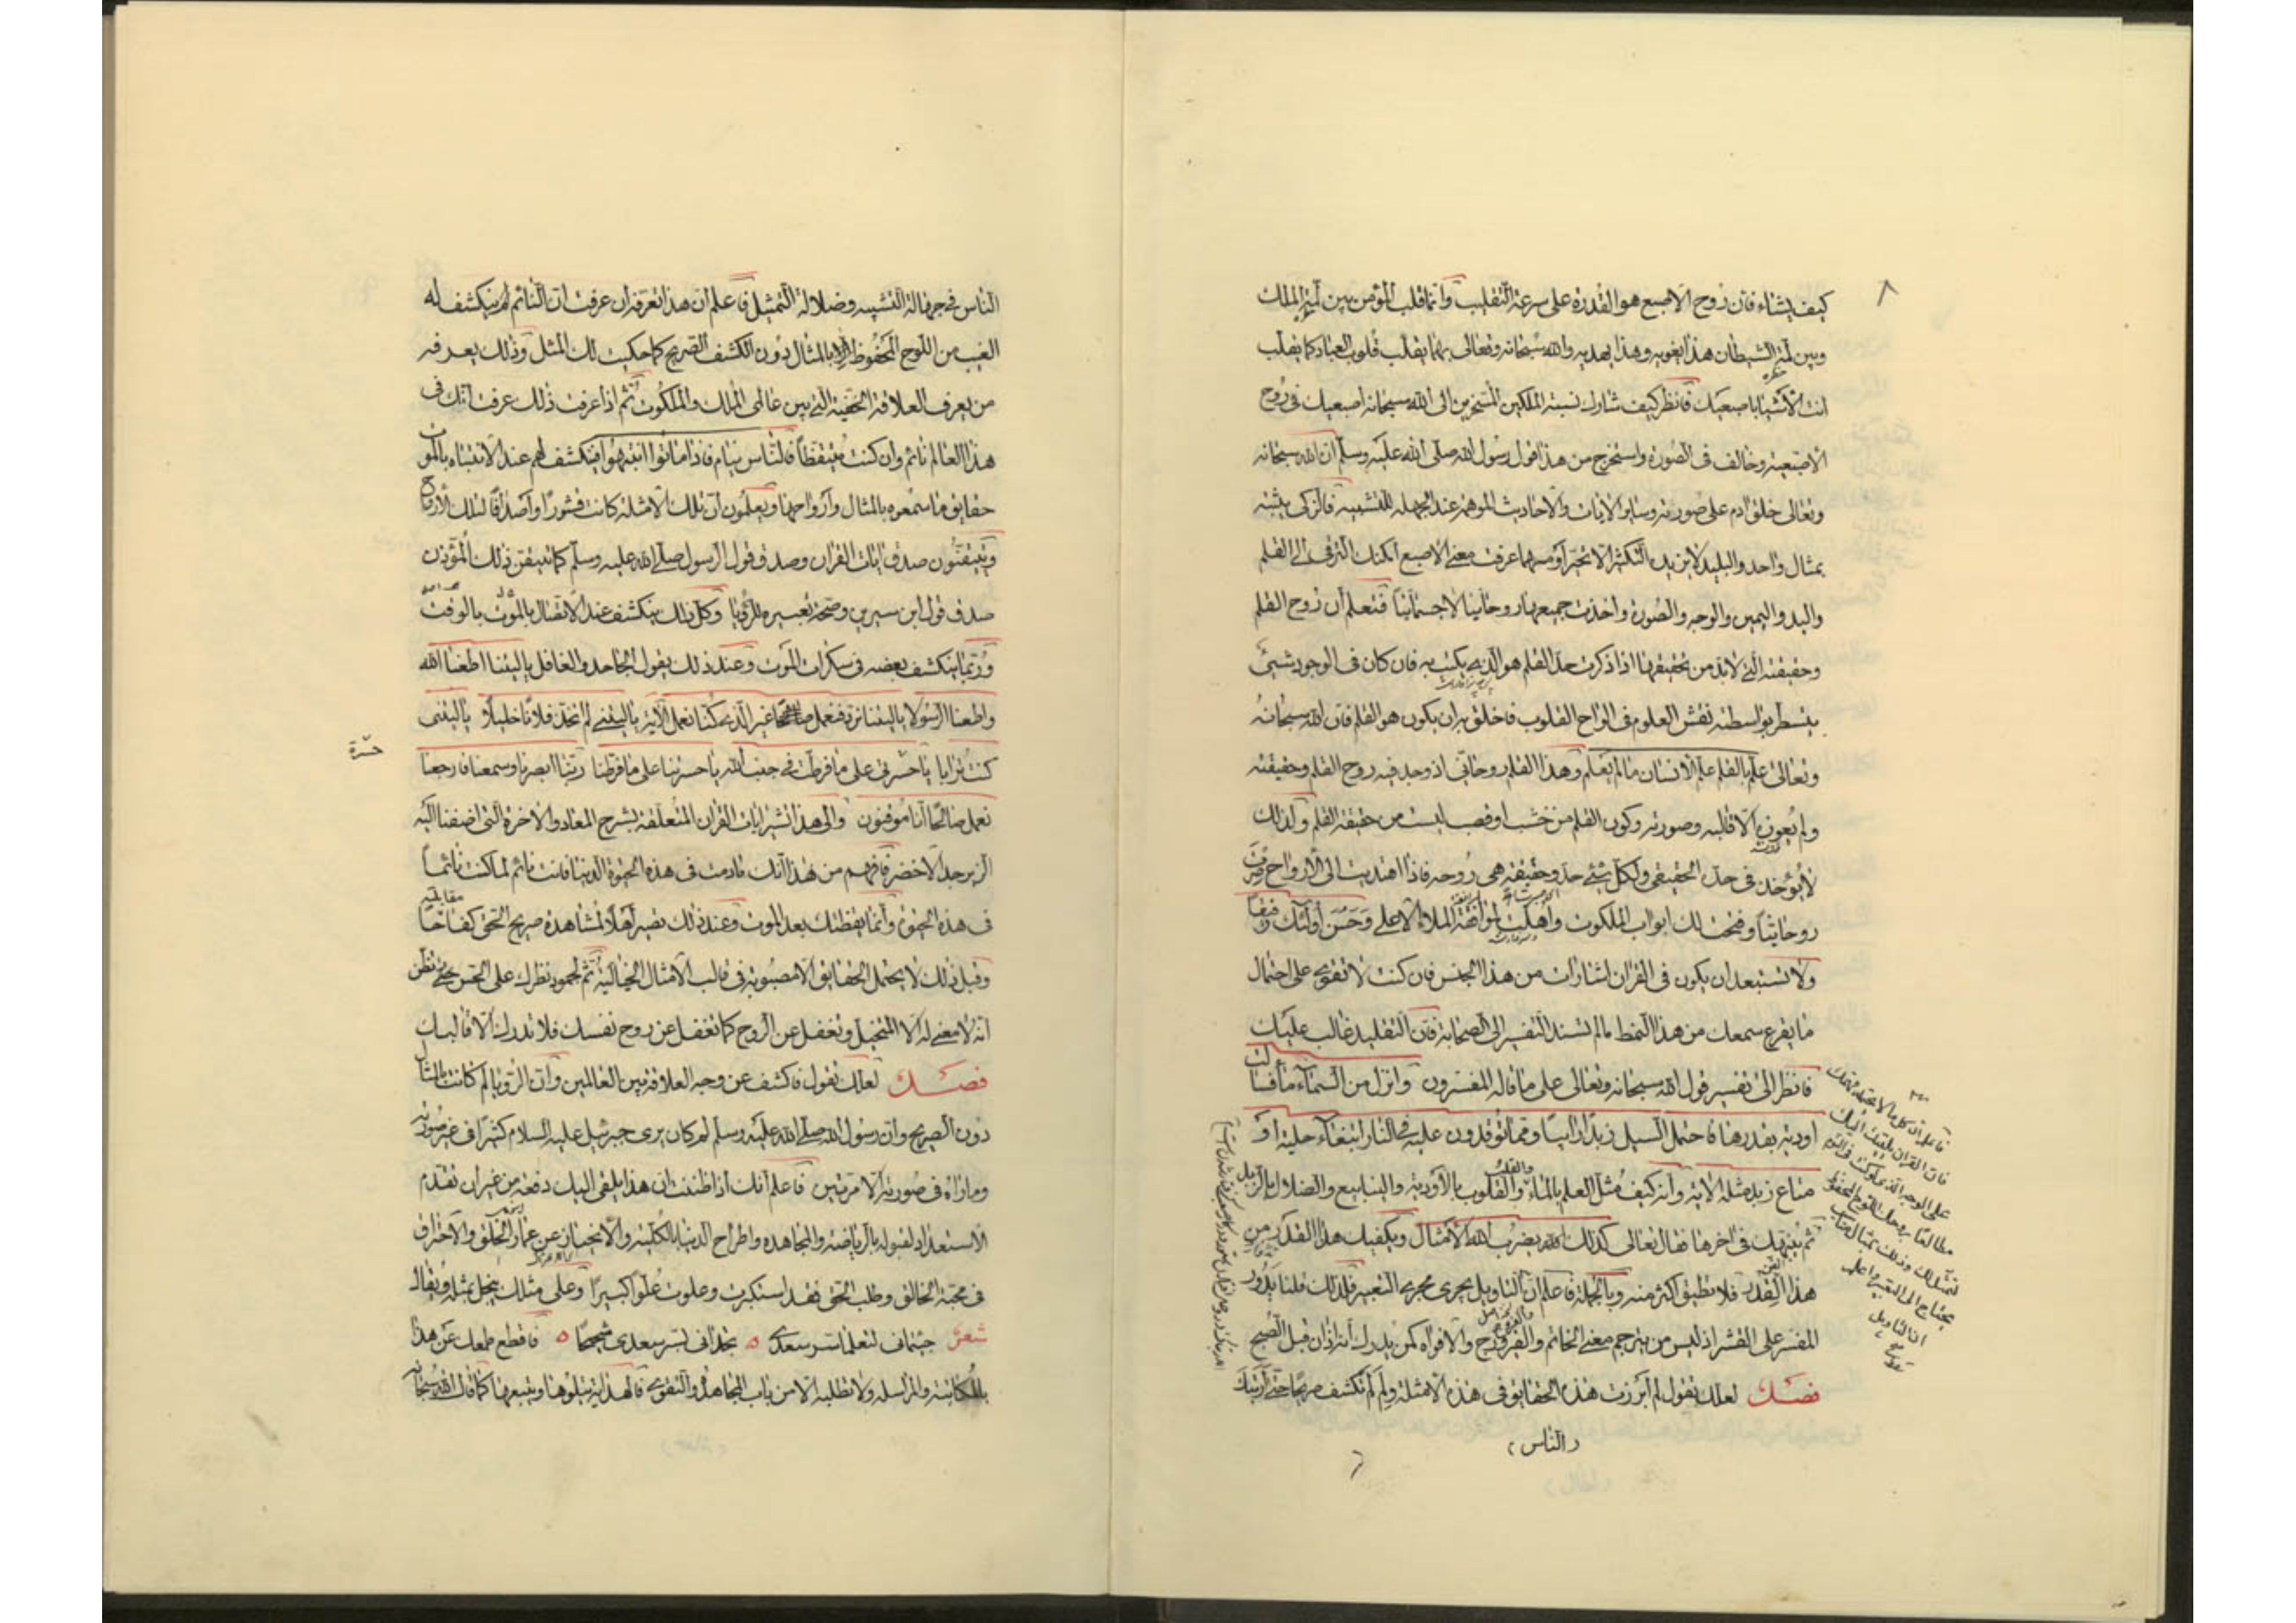 ٨
كيف يشاء فان روح الاصبع هو القدرة على سرعة التقليب وانما قلب المؤمن بين لمة الملك
وبين لمة الشيطان هذا يغويه وهذا يهديه والله سبحانه وتعالى بهما يقلب قلوب العباد كما يقلب
انت الاشيا باصبعيك فانظر كيف شارك نسبة الملكين المسخرين الى الله سبحانه اصبعيك فى روح
الاصبعية وخالف فى الصورة واستخرج من هذا قول رسول الله صلى الله عليه وسلم ان الله سبحانه
وتعالى خلق ادم على صورته وساير الايات والاحاديث الموهمة عند الجهلة للتشبيه فالزكى يتنبه
بمثال واحد والبليد لا يزيده التكثير الا تحيرا ومهما عرفت معنى الاصبع امكنك الترقى الى القلم
واليد واليمين والوجه والصورة واخذت جميعها روحانيا لا جسمانيا فتعلم ان روح القلم
وحقيقته التى لا بد من تحقيقها اذا ذكرت حد القلم هو الذى يكتب به فان كان فى الوجود شيئ
يتسطر بواسطته نقش العلوم فى الواح القلوب فاخلق به ان يكون هو القلم فان الله سبحانه
وتعالى علم بالقلم علم الانسان ما لم يعلم وهذا القلم روحانى اذ وجد فيه روح القلم وحقيقته
ولم يعوزه الا قالبه وصورته وكون القلم من خشب او قصب ليست من حقيقة القلم ولذلك
لا يؤخذ فى حده الحقيقى ولكل شئ حد وحقيقة هى روحه فاذا اهتديت الى الارواح صرت
روحانيا وفتحت لك ابواب الملكوت واهلت لمرافقة الملاء الاعلى وحسن اولئك رفيقا
ولا تستبعد ان يكون فى القران اشارات من هذا الجنس فان كنت لا تقوى على احتمال
ما يقرع سمعك من هذا النمط ما لم تسند التفسير الى الصحابة فان التقليد غالب عليك
فانظر الى تفسير قول الله سبحانه وتعالى على ما قاله المفسرون وانزل من السماء ماء فسالت
اودية بقدرها فاحتمل السيل زبدا رابيا ومما توقدون عليه فى النار ابتغاء حلية او
متاع زبد مثله الاية وانه كيف مثل العلم بالماء والقلوب بالاودية والينابيع والضلال بالزبد
ثم ينبهك فى اخرها فقال تعالى كذلك يضرب الله الامثال ويكفيك هذا القدر من
هذا الفن فلا تطيق اكثر منه وبالجملة فاعلم ان التاويل يجرى مجرى التعبير فلذلك قلنا يدور
المفسر على القشر اذ ليس من يترجم معنى الخاتم والفروج والافواه كمن يدرك انه اذان قبل الصبح
فصل لعلك تقول لم ابرزت هذه الحقايق فى هذه الامثلة ولم لم تكشف صريحا حتى ارتبك
(الناس)
فاعلم ان كل ما لا يحتمله فهمك
فان القران يلقيه اليك
على الوجه الذى لو كنت فى النوم
مطالعا بروحك اللوح المحفوظ
لتمثل لك ذلك بمثال مناسب
يحتاج الى التعبير واعلم
ان التاويل
الناس فى جهالة التشبيه وضلالة التمثيل فاعلم ان هذا تعرفه ان عرفت ان النائم لم ينكشف له
الغيب من اللوح المحفوظ الا بالمثال دون الكشف الصريح كما حكيت لك المثل وذلك يعرفه
من يعرف العلاقة الخفية التى بين عالمى الملك والملكوت ثم اذا عرفت ذلك عرفت انك فى
هذا العالم نائم وان كنت متيقظا فالناس نيام فاذا ماتوا انتبهوا فينكشف لهم عند الانتباه بالموت
حقايق ما سمعوه بالمثال وارواحها ويعلمون ان تلك الامثلة كانت قشورا واصدافا لتلك الارواح
ويتيقنون صدق ايات القران وصدق قول الرسول صلى الله عليه وسلم كما تيقن ذلك المؤذن
صدق قول ابن سيرين وصحة تعبيره للرؤيا وكل ذلك ينكشف عند الاتصال بالموت
وربما ينكشف بعضه فى سكرات الموت وعند ذلك يقول الجاحد والغافل يا ليتنا اطعنا الله
واطعنا الرسولا يا ليتنا نرد فنعمل صالحا غير الذى كنا نعمل الاية يا ليتنى لم اتخذ فلانا خليلا يا ليتنى
كنت ترابا يا حسرتى على ما فرطت فى جنب الله يا حسرتنا على ما فرطنا ربنا ابصرنا وسمعنا فارجعنا
حسرة
نعمل صالحا انا موقنون والى هذا تشير ايات القران المتعلقة بشرح المعاد والاخرة التى اضفنا اليه
الزبرجد الاخضر فافهم من هذا انك ما دمت فى هذه الحيوة الدنيا فانت نائم
فى هذه الحيوة وانما يقظتك بعد الموت وعند ذلك تصير اهلا لمشاهدة صريح الحق كفاحا
وقبل ذلك لا يحتمل الحقايق الا مصبوبة فى قالب الامثال الخيالية ثم لجمود نظرك على الحس حتى تظن
انه لا معنى له الا المتخيل وتغفل عن الروح كما تغفل عن روح نفسك فلا تدرك الا قالبك
فصل لعلك تقول فاكشف عن وجه العلاقة بين العالمين وان الرؤيا لم كانت بالمثال
دون الصريح وان رسول الله صلى الله عليه وسلم لم كان يرى جبرئيل عليه السلام كثيرا فى غير صورته
وما راه فى صورته الا مرتين فاعلم انك اذا ظننت ان هذا يلقى اليك دفعة من غير ان تقدم
الاستعداد لقبوله بالرياضة والمجاهده واطراح الدنيا بالكلية والانحياز عن غمار الخلق والاحتراق
فى محبة الخالق وطلب الحق فقد استكبرت وعلوت علوا كبيرا وعلى مثلك يبخل بمثله ويقال
شعر جئتمانى لتعلما سر سعدى ه تجدانى بسر سعدى شحيحا ه فاقطع طمعك عن هذا
بالمكاتبة والمراسله ولا تطلبه الا من باب المجاهدة والتقوى فالهداية تتلوها وتتبعها كما قال الله سبحانه